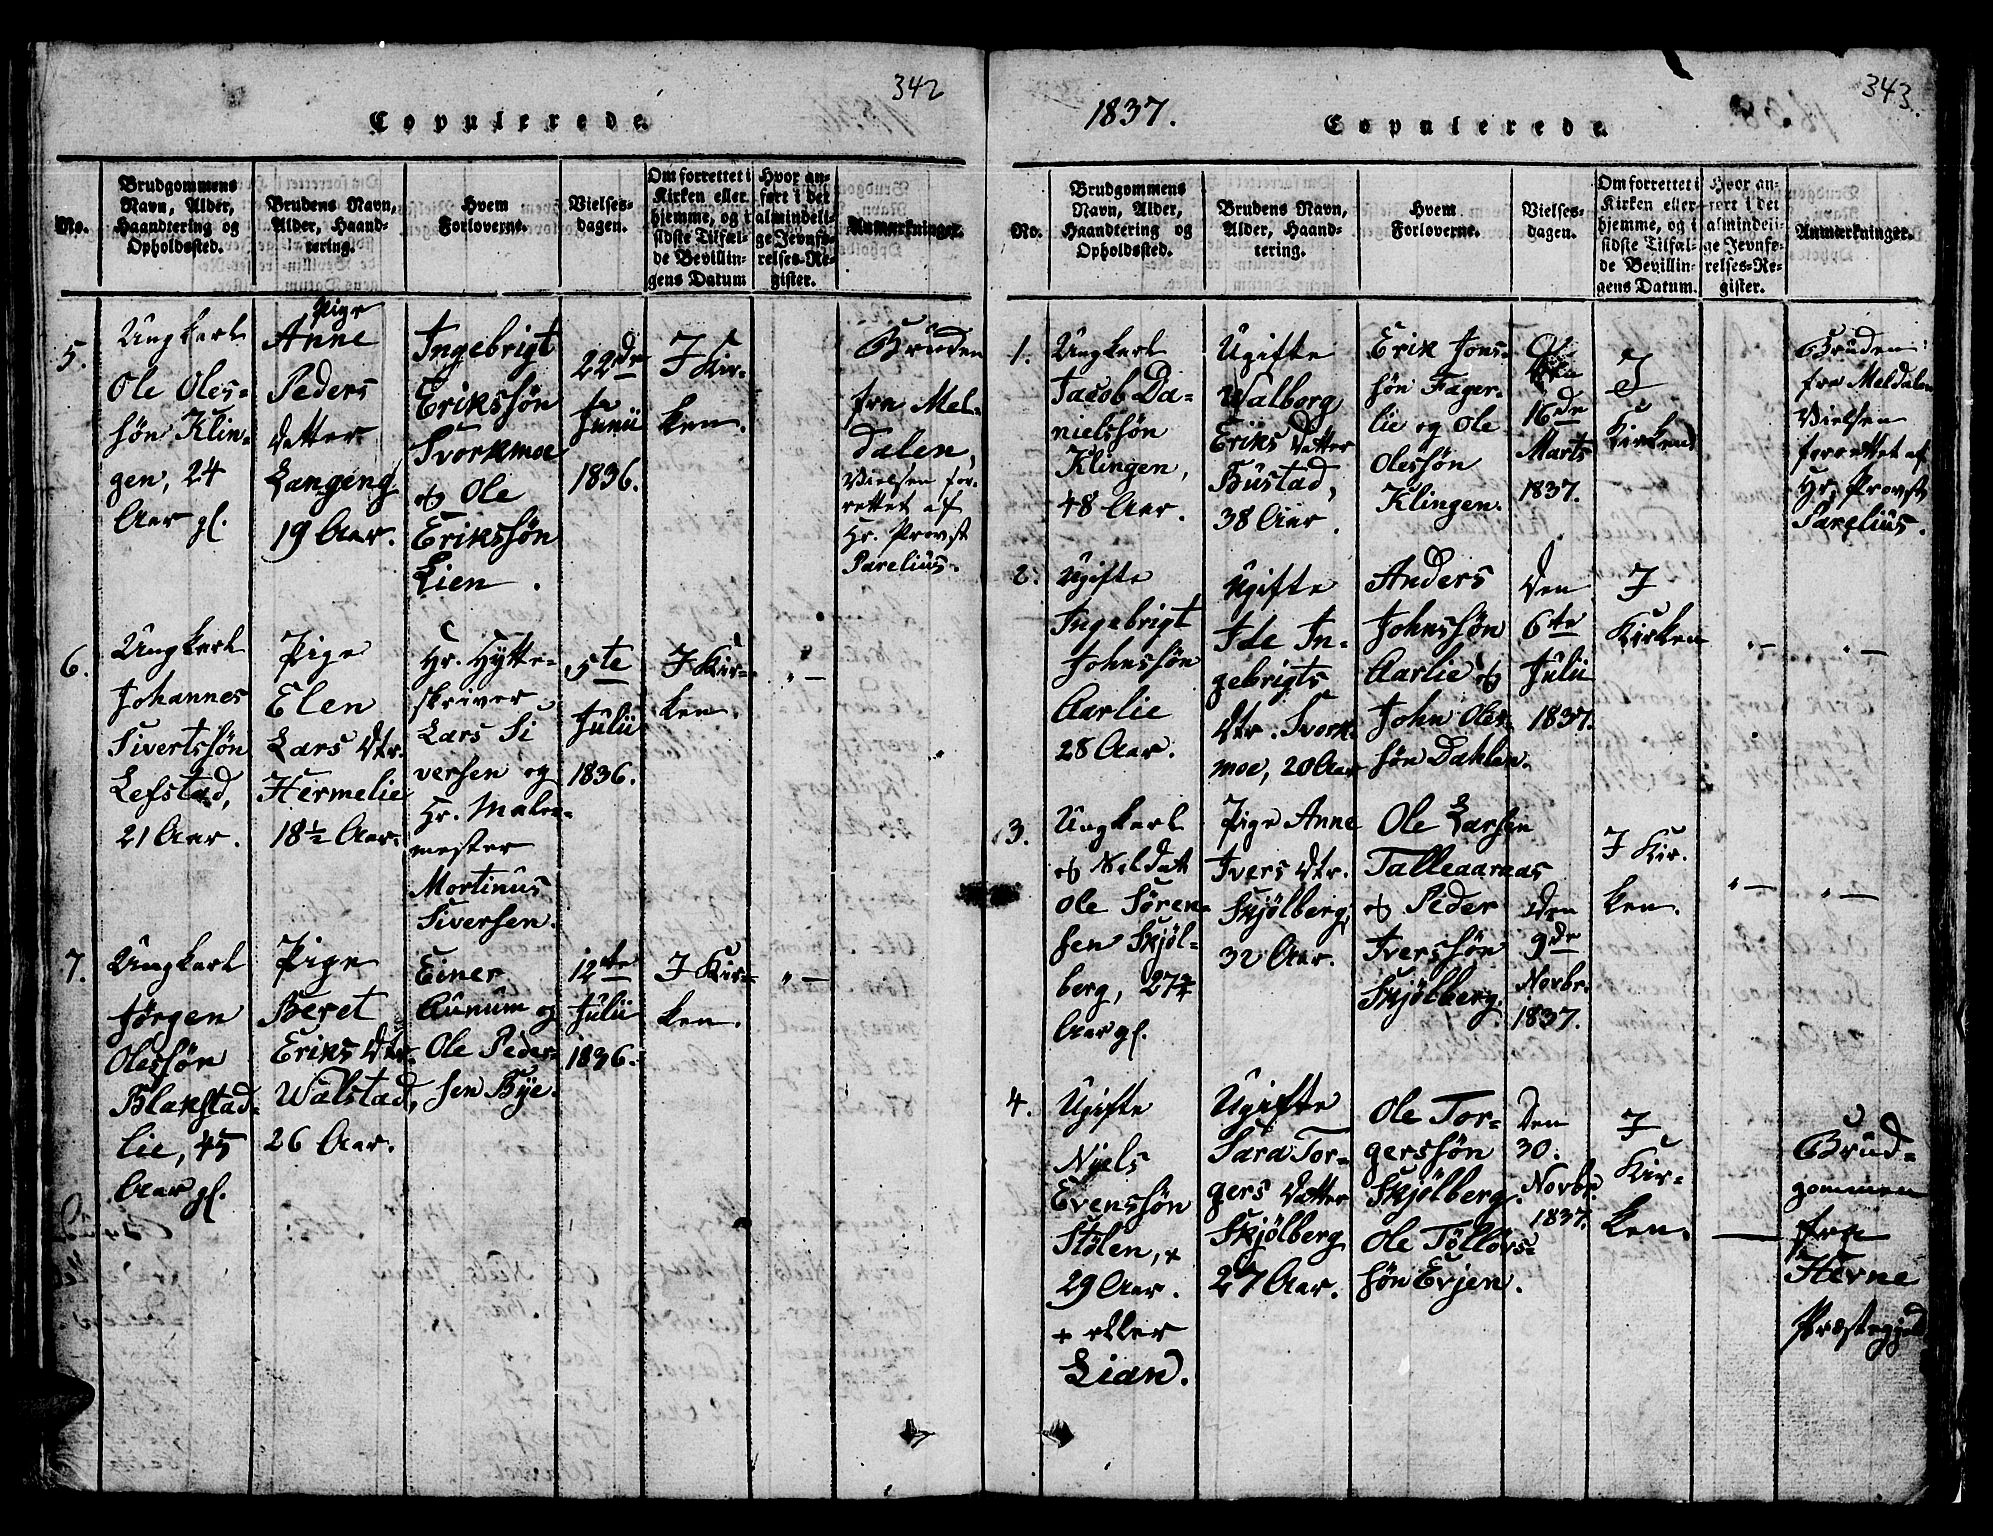 342
Copulerede
No.
Brudgommens
Navn, Alder,
Haandtering og
Opholdssted.
Brudens Navn,
Alder, Haand-
tering.
Hvem
Forloverne.
Vielses-
dagen.
Om forrettet i
Kirken eller
hjemme, og i
sidste Tilfæl-
de Bevillin-
gens Datum
Hvor an-
ført i det
almindeli-
ge Jevnfø-
relses-Re-
gister.
Anmærkninger.
5.
Ungkarl
Ole Oles-
søn Klin-
gen, 24
Aar gl.
Pige
Anne
Peders
Datter
Langeng
19 Aar.
Ingebrigt
Erikssøn
Svorkmoe
og Ole
Erikssøn
Lien.
22de
Junii
1836.
I Kir-
ken.
Bruden
fra Mel-
dalen,
Vielsen for-
rettet af
Hr. Provst
Parelius.
6.
Ungkarl
Johannes
Sivertssøn
Lefstad,
21 Aar.
Pige
Elen
Lars Dtr.
Hermelie
18½ Aar.
Hr. Hytte-
skriver
Lars Si
versen og
Hr. Maler-
mester
Mortinus
Siversen.
5te
Julii
1836.
I Kir-
ken.
" —
7.
Ungkarl
Jørgen
Olessøn
Blakstad-
lie, 45
Aar gl.
Pige
Beret
Eriks Dtr.
Walstad,
26 Aar.
Einer
Aunum og
Ole Peder-
sen Bye.
12te
Julii
1836.
I Kir-
ken.
" —
343.
1837.
Copulerede
No.
Brudgommens
Navn, Alder,
Haandtering og
Opholdssted.
Brudens Navn,
Alder, Haand-
tering.
Hvem
Forloverne.
Vielses-
dagen.
Om forrettet i
Kirken eller
hjemme, og i
sidste Tilfæl-
de Bevillin-
gens Datum.
Hvor an-
ført i det
almindeli-
ge Jevnfø-
relses-Re-
gister.
Anmærkninger.
1.
Ungkarl
Jacob Da-
nielssøn
Klingen,
48 Aar.
Ugifte
Walborg
Eriks Datter
Bustad,
38 Aar.
Erik Jons-
søn Fager-
lie og Ole
Olessøn
Klingen.
16de
Marts
1837.
I
Kirken
Bruden
fra Meldalen
Vielsen
forrettet af
Hr. Provst
Parelius.
2.
Ugifte
Ingebrigt
Johnssøn
Aarlie
28 Aar.
Ugifte
Ide In-
gebrigts
Dtr. Svork-
moe, 20 Aar
Anders
Johnssøn
Aarlie og
John Oles-
søn Dahlen.
Den
6te
Julii
1837.
I
Kirken
" —
" —
3.
Ungkarl
og Soldat
Ole Søren-
sen Skjøl-
berg, 27¾
Aar gl.
Pige Anne
Ivers Dtr.
Skjølberg,
32 Aar.
Ole Larsen
Talleaarnaas
og Peder
Iverssøn
Skjølberg.
Den
9de
Novbr.
1837.
I Kir-
ken.
" —
" —
4.
Ugifte
Niels
Evenssøn
Stølen, +
29 Aar.
+ eller
Lian.
Ugifte
Sara Tor-
gers Datter
Skjølberg
27 Aar.
Ole Tor-
gerssøn
Skjølberg.
Ole Tølløvs-
søn Evjen.
Den
30.
Novbr.
1837.
I
Kir-
ken.
—
Brud-
gommen
fra
Hevne
Præstegjeld